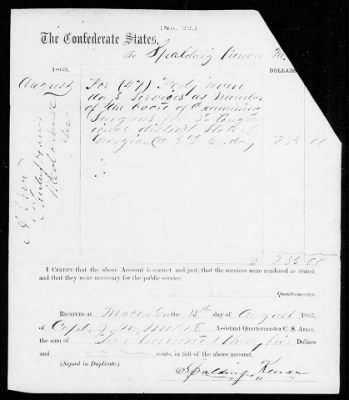 [No. 22.]
The Confederate States,
To Spalding Kenan
DOLLARS
1863.
August
For (47) Forty seven
days Services as Member
of the Board of Examining
Surgeons for
district State of
Georgia @ $5 Per day
235 00
$ 235 00
I CERTIFY that the above Account is correct and just, that the services were rendered as stated,
and that they were necessary for the public service.
Quartermaster.
RECEIVED at Macon Ga the 18th day of August 1863,
of Capt. Assistant Quartermaster C. S. Army,
the sum of Two hundred & thirty five Dollars
and cents, in full of the above account.
(Signed in Duplicate.)
Spalding Kenan